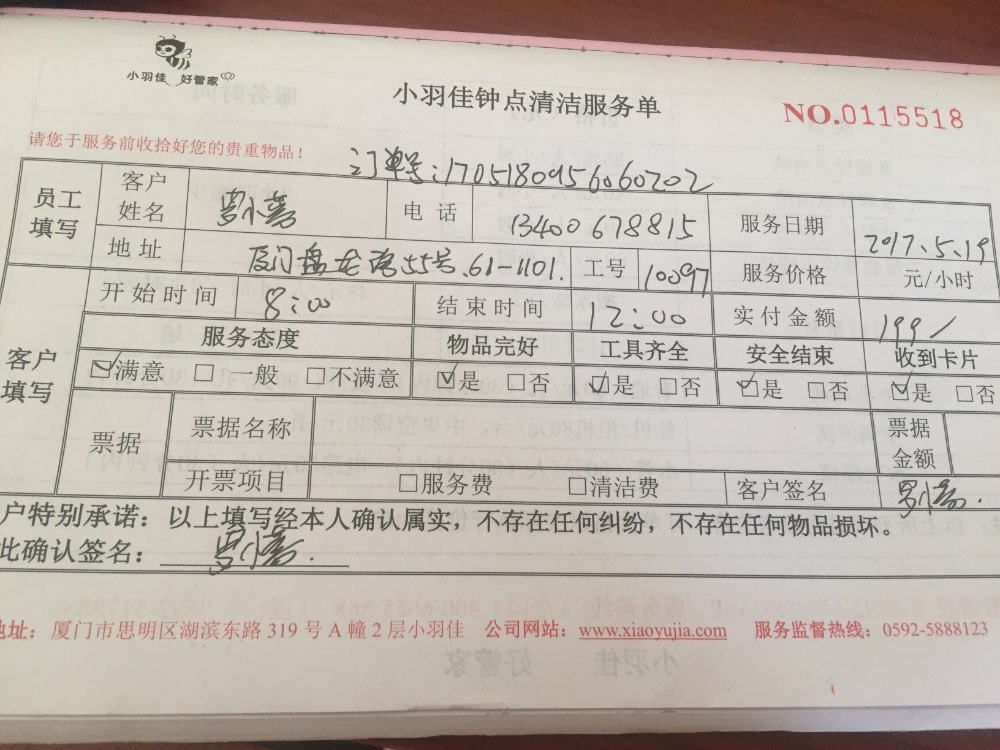 小羽佳 好管家
小羽佳钟点清洁服务单
NO.0115518
请您于服务前收拾好您的贵重物品！
订单号:1705180956060202
员工填写 客户姓名 罗小 电话 13400678815 服务日期 2017.5.19
地址 厦门盘龙路55号.61-1101. 工号 10097 服务价格 元/小时
客户填写 开始时间 8:00 结束时间 12:00 实付金额 199/
服务态度 物品完好 工具齐全 安全结束 收到卡片
☑满意 □一般 □不满意 ☑是 □否 ☑是 □否 ☑是 □否 ☑是 □否
票据 票据名称 票据金额
开票项目 □服务费 □清洁费 客户签名 罗小
户特别承诺：以上填写经本人确认属实，不存在任何纠纷，不存在任何物品损坏。
此确认签名： 罗小
地址：厦门市思明区湖滨东路 319 号 A 幢 2 层小羽佳 公司网站：www.xiaoyujia.com 服务监督热线：0592-5888123